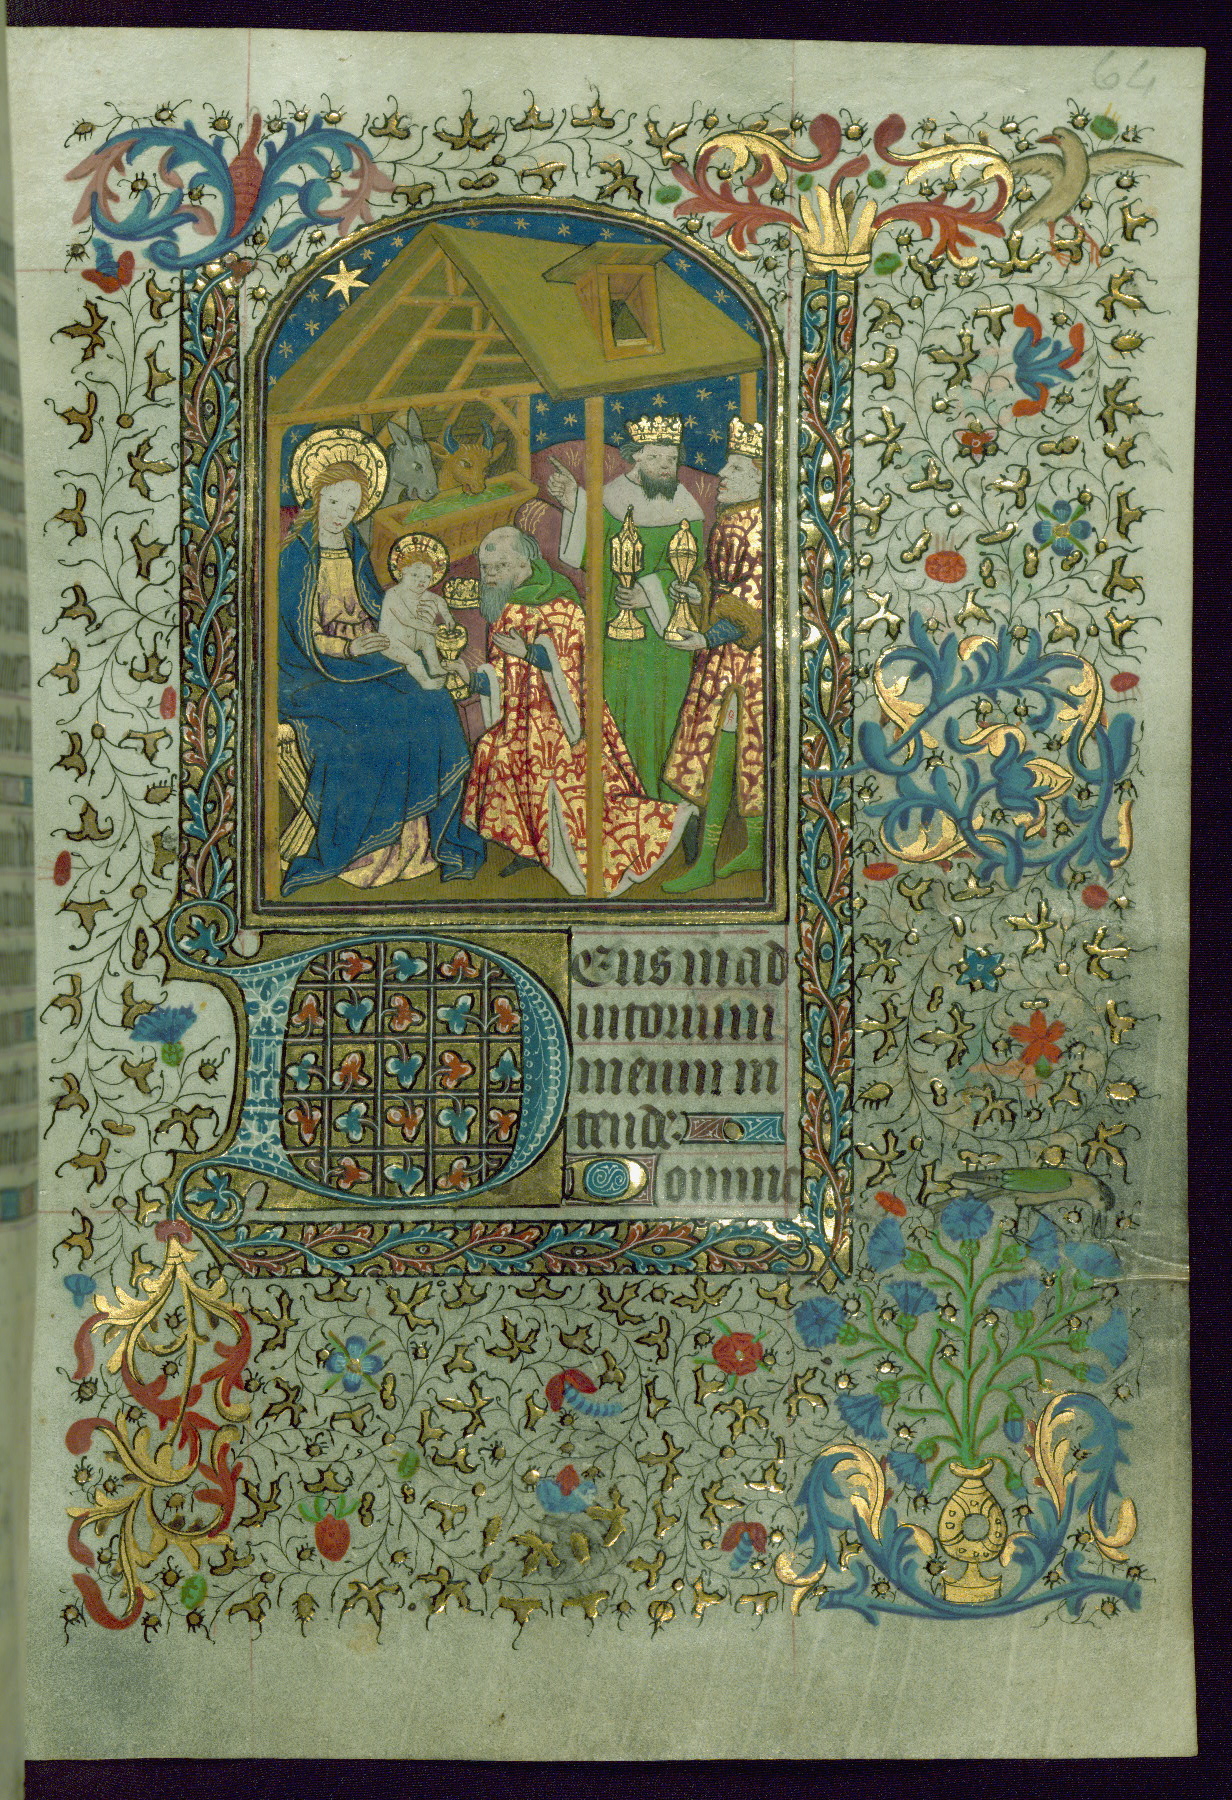 64
Deus in ad
iutorium
meum in
tende.
Domine